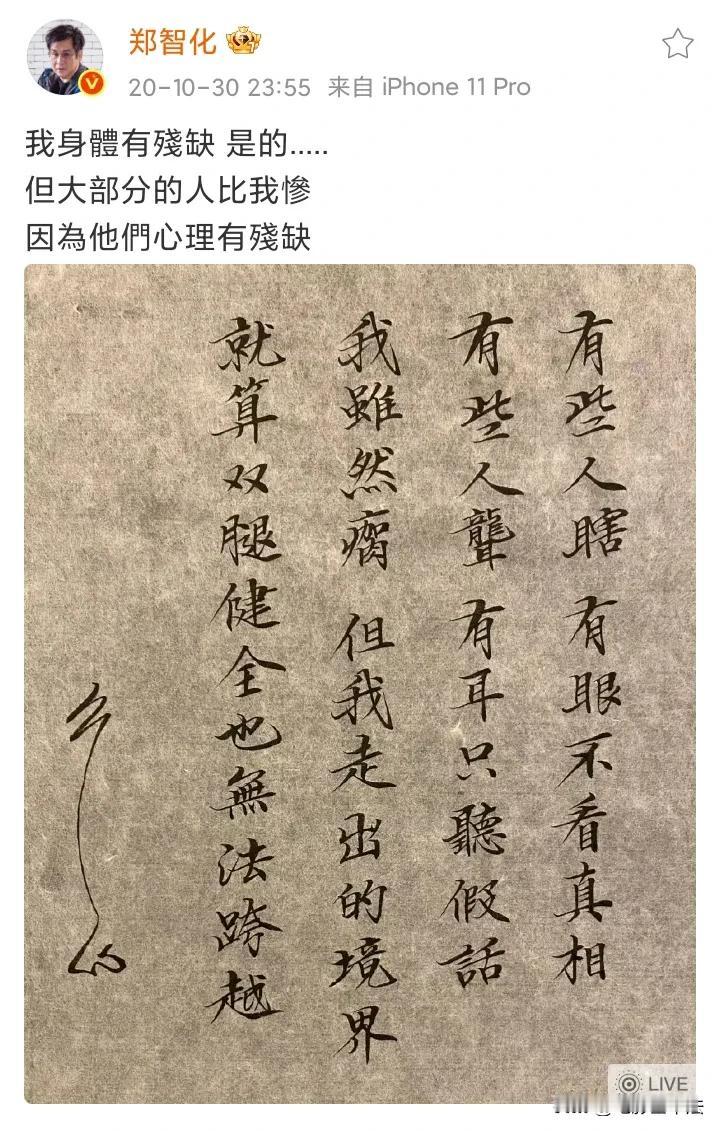 郑智化
20-10-30 23:55 来自 iPhone 11 Pro
我身體有殘缺 是的.....
但大部分的人比我慘
因為他們心理有殘缺
有些人瞎 有眼不看真相
有些人聾 有耳只聽假話
我雖然瘸 但我走出的境界
就算双腿健全也無法跨越
LIVE